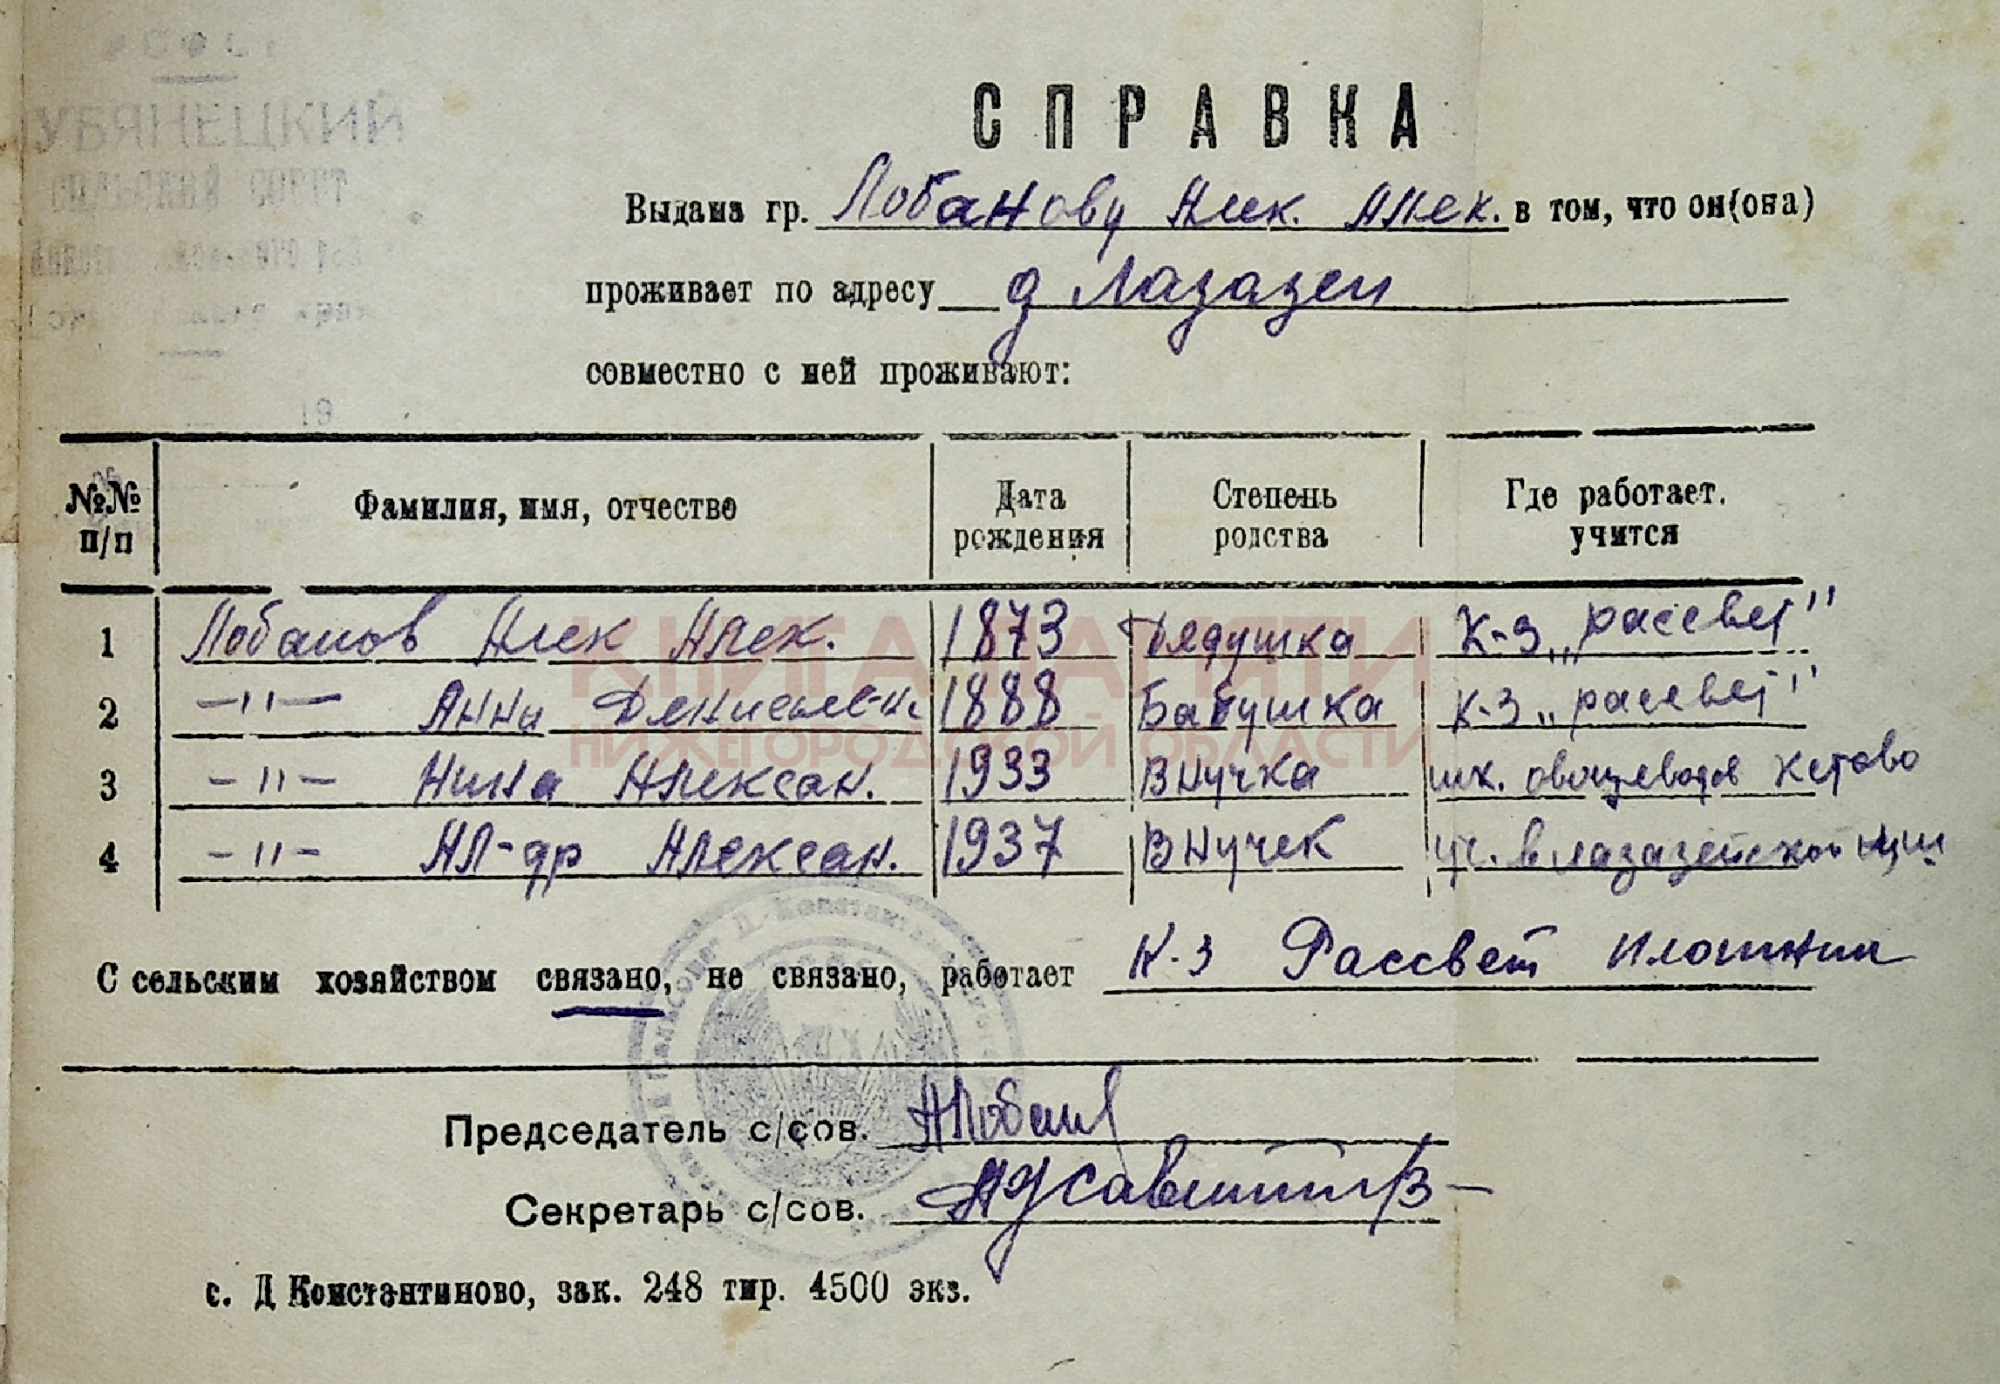 УБЯНЕЦКИЙ
СЕЛЬСКИЙ СОВЕТ
19
СПРАВКА
Выдана гр. Лобанову Алек. Алек. в том, что он(она)
проживает по адресу д Лазазеи
совместно с ней проживают:
№№ п/п Фамилия, имя, отчество Дата рождения Степень родства Где работает. учится
1 Лобанов Алек Алек. 1873 Дядушка К-з „рассвет"
2 —"— Анна Денисьев-н. 1888 Бабушка К-з „рассвет"
3 -"- Нина Алексан. 1933 Внучка шк. овощеводов Кстово
4 -"- Ал-др Алексан. 1937 Внучек уч. в лазазейской
КНИГА ПАМЯТИ
НИЖЕГОРОДСКОЙ ОБЛАСТИ
С сельским хозяйством связано, не связано, работает К-з Рассвет плотник
Председатель с/сов. АЛобанов
Секретарь с/сов.
с. Д Константиново, зак. 248 тир. 4500 экз.